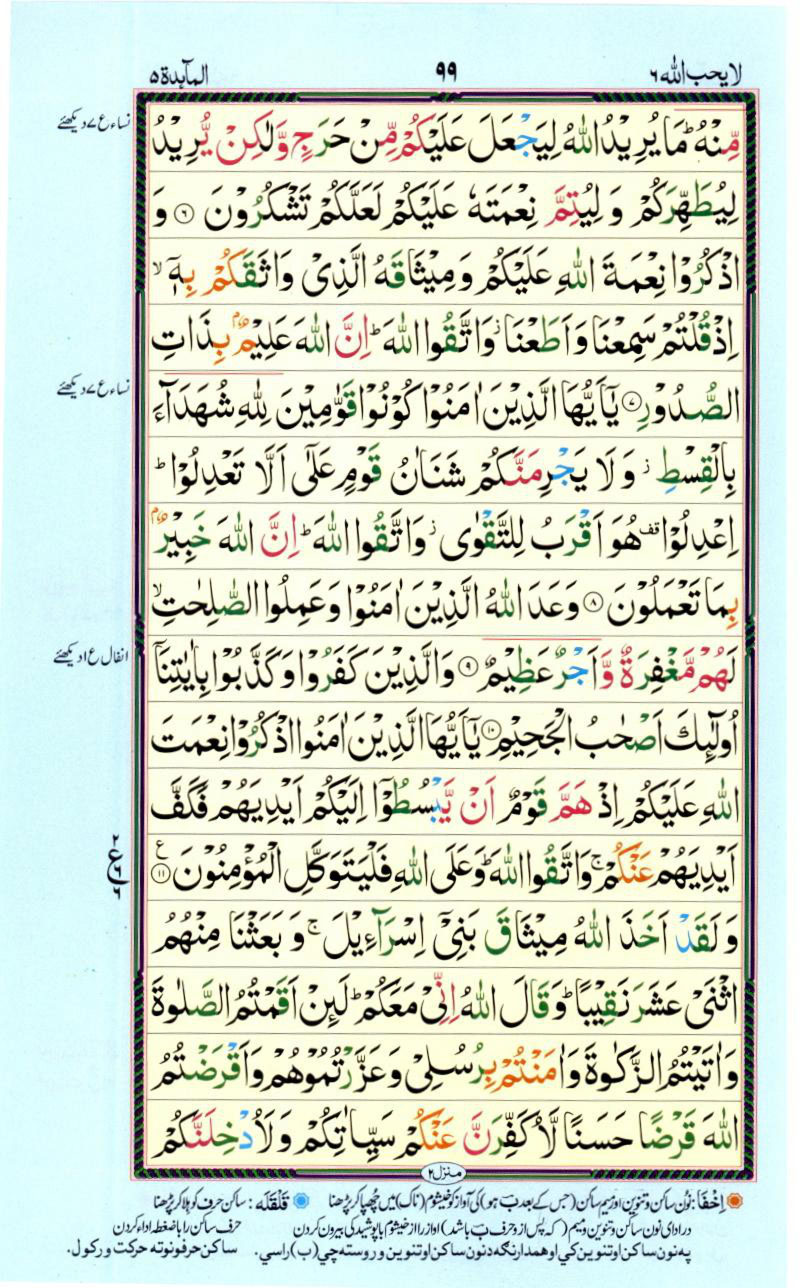 لا يحب الله ٦ ٩٩ المآئدة ٥
مِّنْهُ ؕ مَا يُرِيْدُ اللّٰهُ لِيَجْعَلَ عَلَيْكُمْ مِّنْ حَرَجٍ وَّلٰكِنْ يُّرِيْدُ
نساء ع ۷ دیکھئے
لِيُطَهِّرَكُمْ وَ لِيُتِمَّ نِعْمَتَهٗ عَلَيْكُمْ لَعَلَّكُمْ تَشْكُرُوْنَ ۝٦ وَ
اذْكُرُوْا نِعْمَةَ اللّٰهِ عَلَيْكُمْ وَ مِيْثَاقَهُ الَّذِيْ وَاثَقَكُمْ بِهٖۤ ۙ
اِذْ قُلْتُمْ سَمِعْنَا وَ اَطَعْنَا ؗ وَ اتَّقُوا اللّٰهَ ؕ اِنَّ اللّٰهَ عَلِيْمٌۢ بِذَاتِ
الصُّدُوْرِ ۝٧ يٰۤاَيُّهَا الَّذِيْنَ اٰمَنُوْا كُوْنُوْا قَوّٰمِيْنَ لِلّٰهِ شُهَدَآءَ
نساء ع ۷ دیکھئے
بِالْقِسْطِ ؗ وَ لَا يَجْرِمَنَّكُمْ شَنَاٰنُ قَوْمٍ عَلٰۤى اَلَّا تَعْدِلُوْا ؕ
اِعْدِلُوْا قف هُوَ اَقْرَبُ لِلتَّقْوٰى ؗ وَ اتَّقُوا اللّٰهَ ؕ اِنَّ اللّٰهَ خَبِيْرٌۢ
بِمَا تَعْمَلُوْنَ ۝٨ وَعَدَ اللّٰهُ الَّذِيْنَ اٰمَنُوْا وَ عَمِلُوا الصّٰلِحٰتِ ۙ
لَهُمْ مَّغْفِرَةٌ وَّ اَجْرٌ عَظِيْمٌ ۝٩ وَ الَّذِيْنَ كَفَرُوْا وَ كَذَّبُوْا بِاٰيٰتِنَاۤ
انفال ع ۱ دیکھئے
اُولٰٓئِكَ اَصْحٰبُ الْجَحِيْمِ ۝١٠ يٰۤاَيُّهَا الَّذِيْنَ اٰمَنُوا اذْكُرُوْا نِعْمَتَ
اللّٰهِ عَلَيْكُمْ اِذْ هَمَّ قَوْمٌ اَنْ يَّبْسُطُوْۤا اِلَيْكُمْ اَيْدِيَهُمْ فَكَفَّ
اَيْدِيَهُمْ عَنْكُمْ ۚ وَ اتَّقُوا اللّٰهَ ؕ وَ عَلَى اللّٰهِ فَلْيَتَوَكَّلِ الْمُؤْمِنُوْنَ ع ۝١١
وَ لَقَدْ اَخَذَ اللّٰهُ مِيْثَاقَ بَنِيْۤ اِسْرَآءِيْلَ ۚ وَ بَعَثْنَا مِنْهُمُ
اثْنَيْ عَشَرَ نَقِيْبًا ؕ وَ قَالَ اللّٰهُ اِنِّيْ مَعَكُمْ ؕ لَئِنْ اَقَمْتُمُ الصَّلٰوةَ
وَ اٰتَيْتُمُ الزَّكٰوةَ وَ اٰمَنْتُمْ بِرُسُلِيْ وَ عَزَّرْتُمُوْهُمْ وَ اَقْرَضْتُمُ
اللّٰهَ قَرْضًا حَسَنًا لَّاُكَفِّرَنَّ عَنْكُمْ سَيِّاٰتِكُمْ وَ لَاُدْخِلَنَّكُمْ
منزل ۲
اِخفَا: نون ساکن و تنوین اور میم ساکن (جس کے بعد ب ہو) کی آواز کو خیشوم (ناک) میں چھپا کر پڑھنا قَلقَلَه: ساکن حرف کو ہلا کر پڑھنا
در ادای نون ساکن و تنوین و میم (که پس از و حرف ب باشد) اواز را از خیشوم با پوشیدگی بیرون کردن حرف ساکن را با ضغطه اداء کردن
په نون ساکن او تنوین کي او همدارنگه د نون ساکن او تنوین و روسته چي (ب) راسي. ساکن حرفونو ته حرکت ورکول.